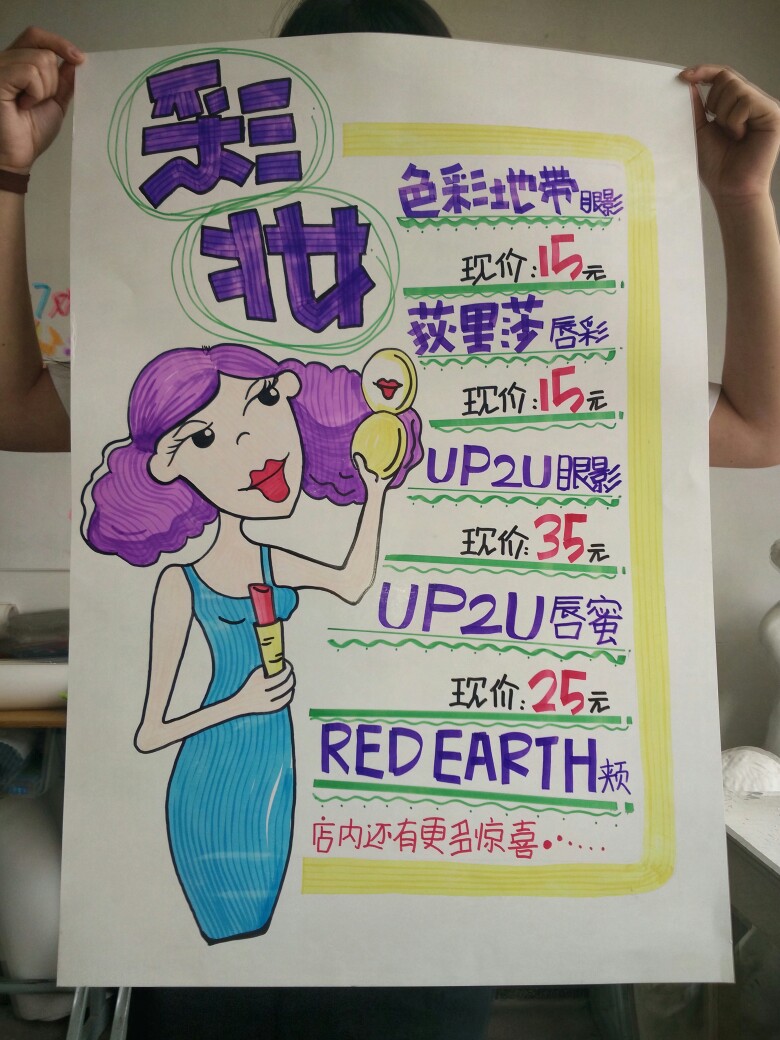 彩
妆
色彩地带眼影
现价:15元
荻里莎唇彩
现价:15元
UP2U眼影
现价:35元
UP2U唇蜜
现价:25元
RED EARTH颊
店内还有更多惊喜······